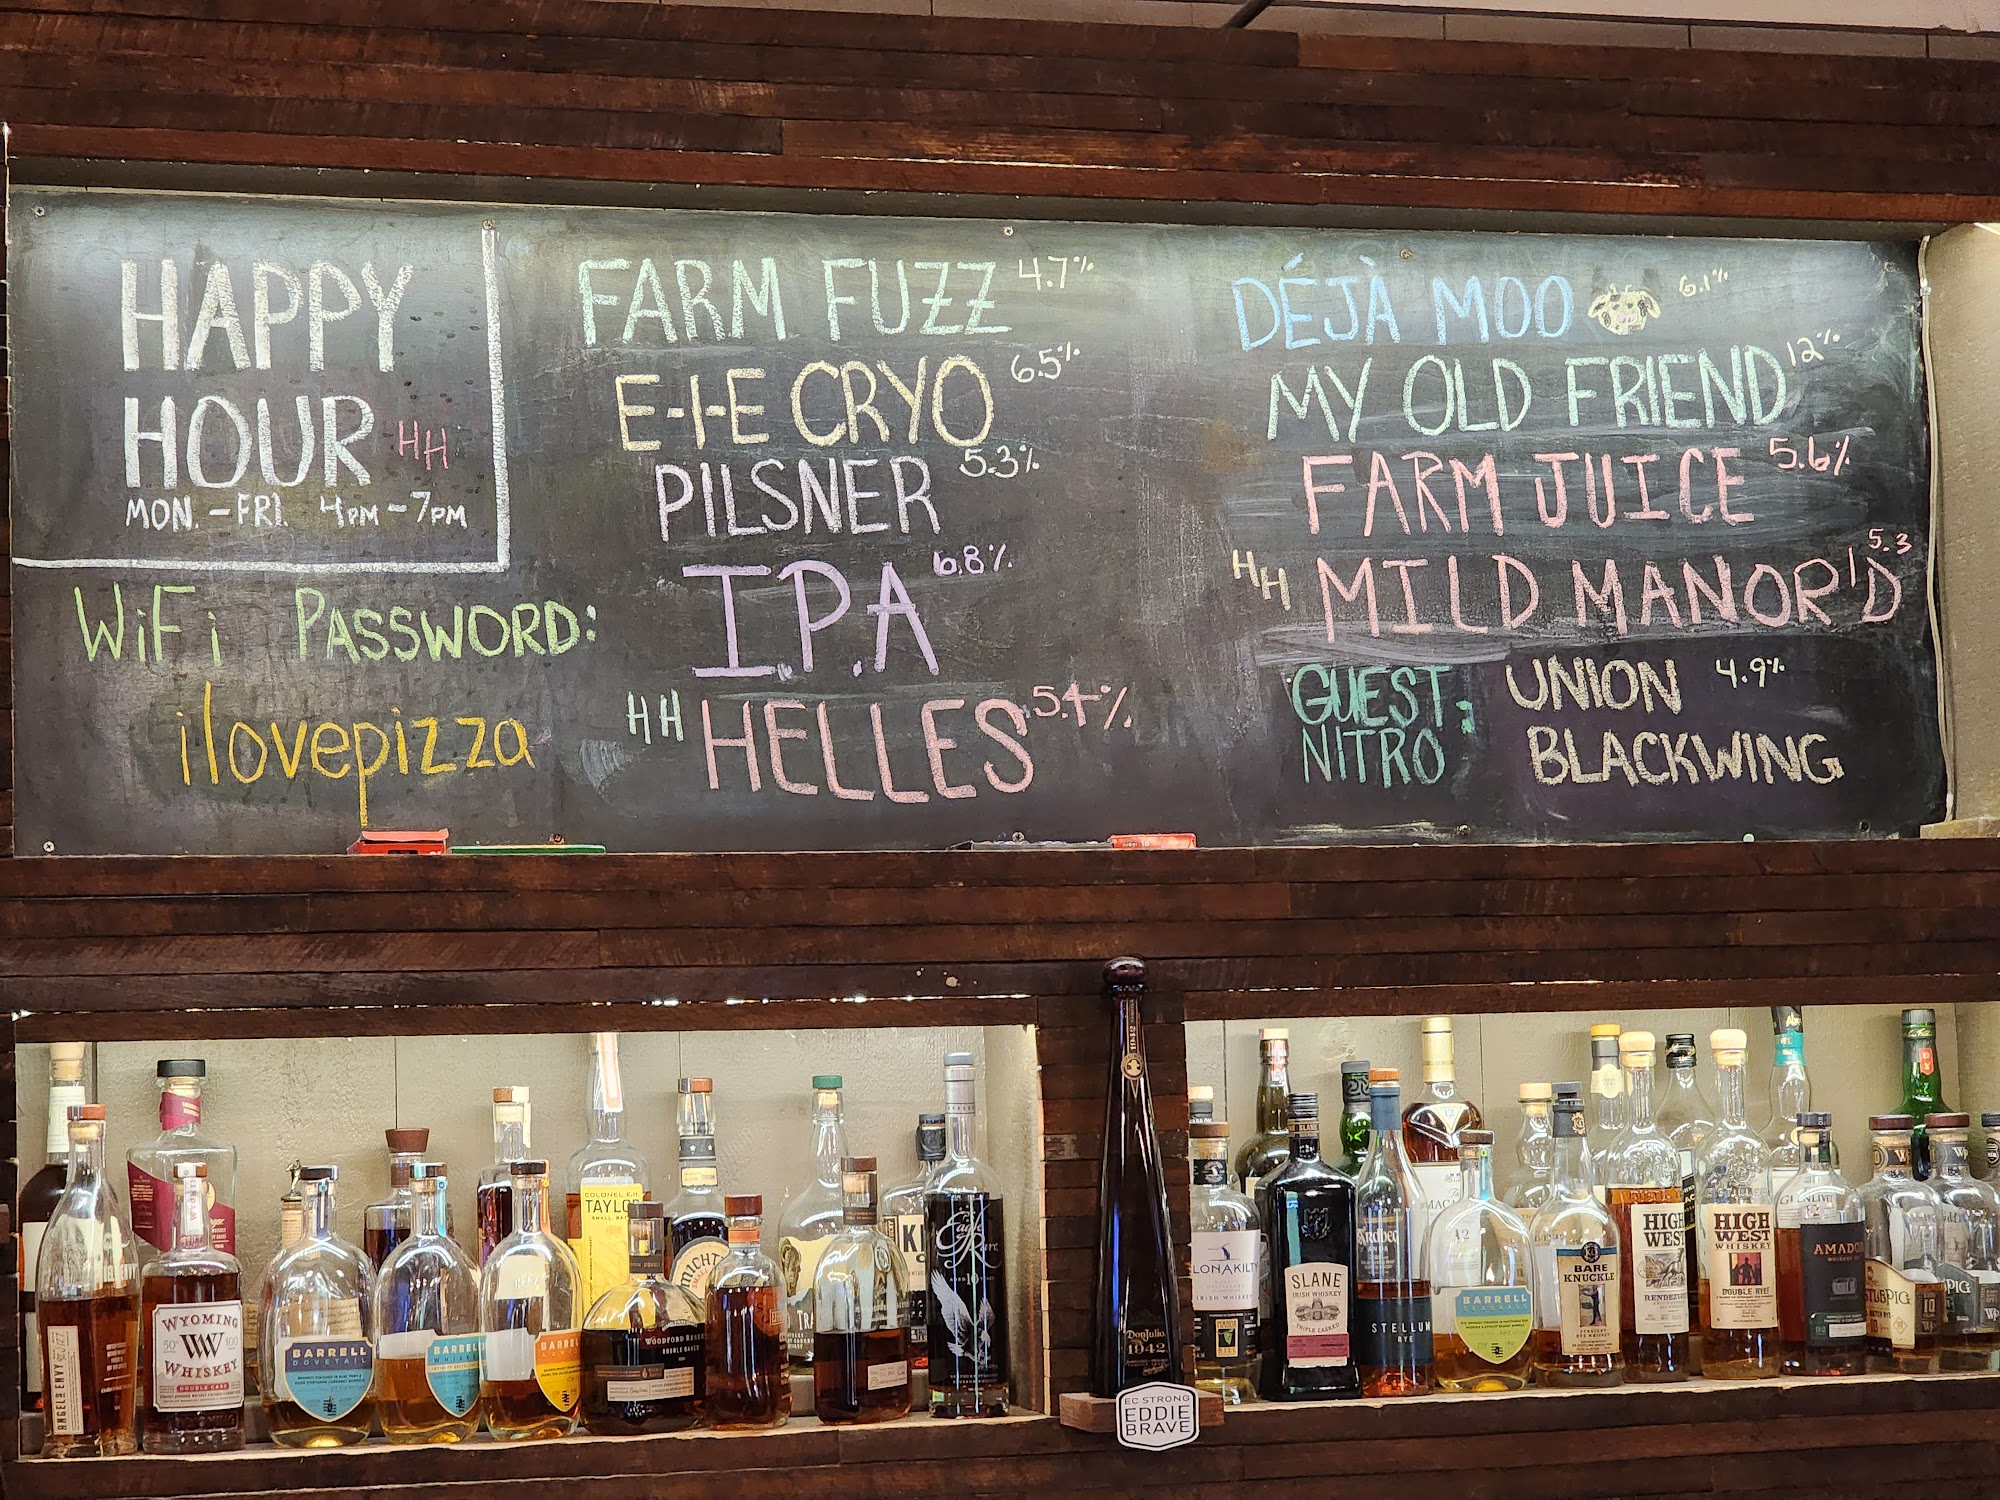 HAPPY
HOUR HH
MON. - FRI. 4PM - 7PM
WiFi PASSWORD:
ilovepizza
FARM FUZZ 4.7%
E-I-E CRYO 6.5%
PILSNER 5.3%
I.P.A 6.8%
HH HELLES 5.4%
DÉJÀ MOO 6.1%
MY OLD FRIEND 12%
FARM JUICE 5.6%
HH MILD MANOR'D 5.3
GUEST NITRO: UNION BLACKWING 4.9%
ANGEL'S ENVY
WYOMING
WHISKEY
DOUBLE CASK
BARRELL
DOVETAIL
BARRELL
BARRELL
COLONEL E.H.
TAYLOR
SMALL BATCH
MICHT
WOODFORD RESERVE
DOUBLE OAKED
Eagle
Rare
1942
Don Julio
1942
EC STRONG
EDDIE
BRAVE
CLONAKILTY
IRISH WHISKEY
SLANE
IRISH WHISKEY
TRIPLE CASKED
Ardbeg
STELLUM
RYE
12
BARRELL
SEAGRASS
BARE
KNUCKLE
STRAIGHT
RYE WHISKEY
HIGH
WEST
RENDEZVOUS
HIGH
WEST
WHISKEY
DOUBLE RYE!
GLENLIVET
AMADOR
PIG